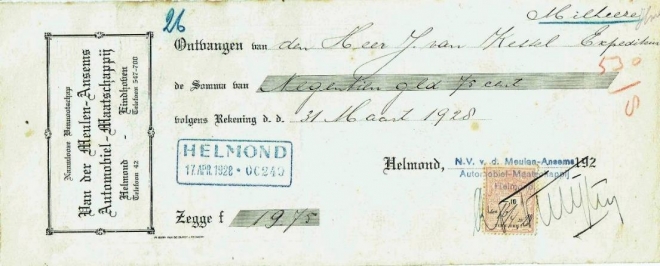 26
Milheeze
Naamlooze Vennootschap
Van der Meulen-Ansems
Automobiel-Maatschappij
Helmond - Eindhoven
Telefoon 42 Telefoon 547-700
Ontvangen van den Heer J. van Kessel Expediteur
de Somma van Negentien gld 75 cent
volgens Rekening d. d. 31 Maart 1928
HELMOND
17 APR. 1928 * OC240
Helmond, 192
N.V. v. d. Meulen-Ansems
Automobiel-Maatschappij
Helmond
10
Zegge f 19.75